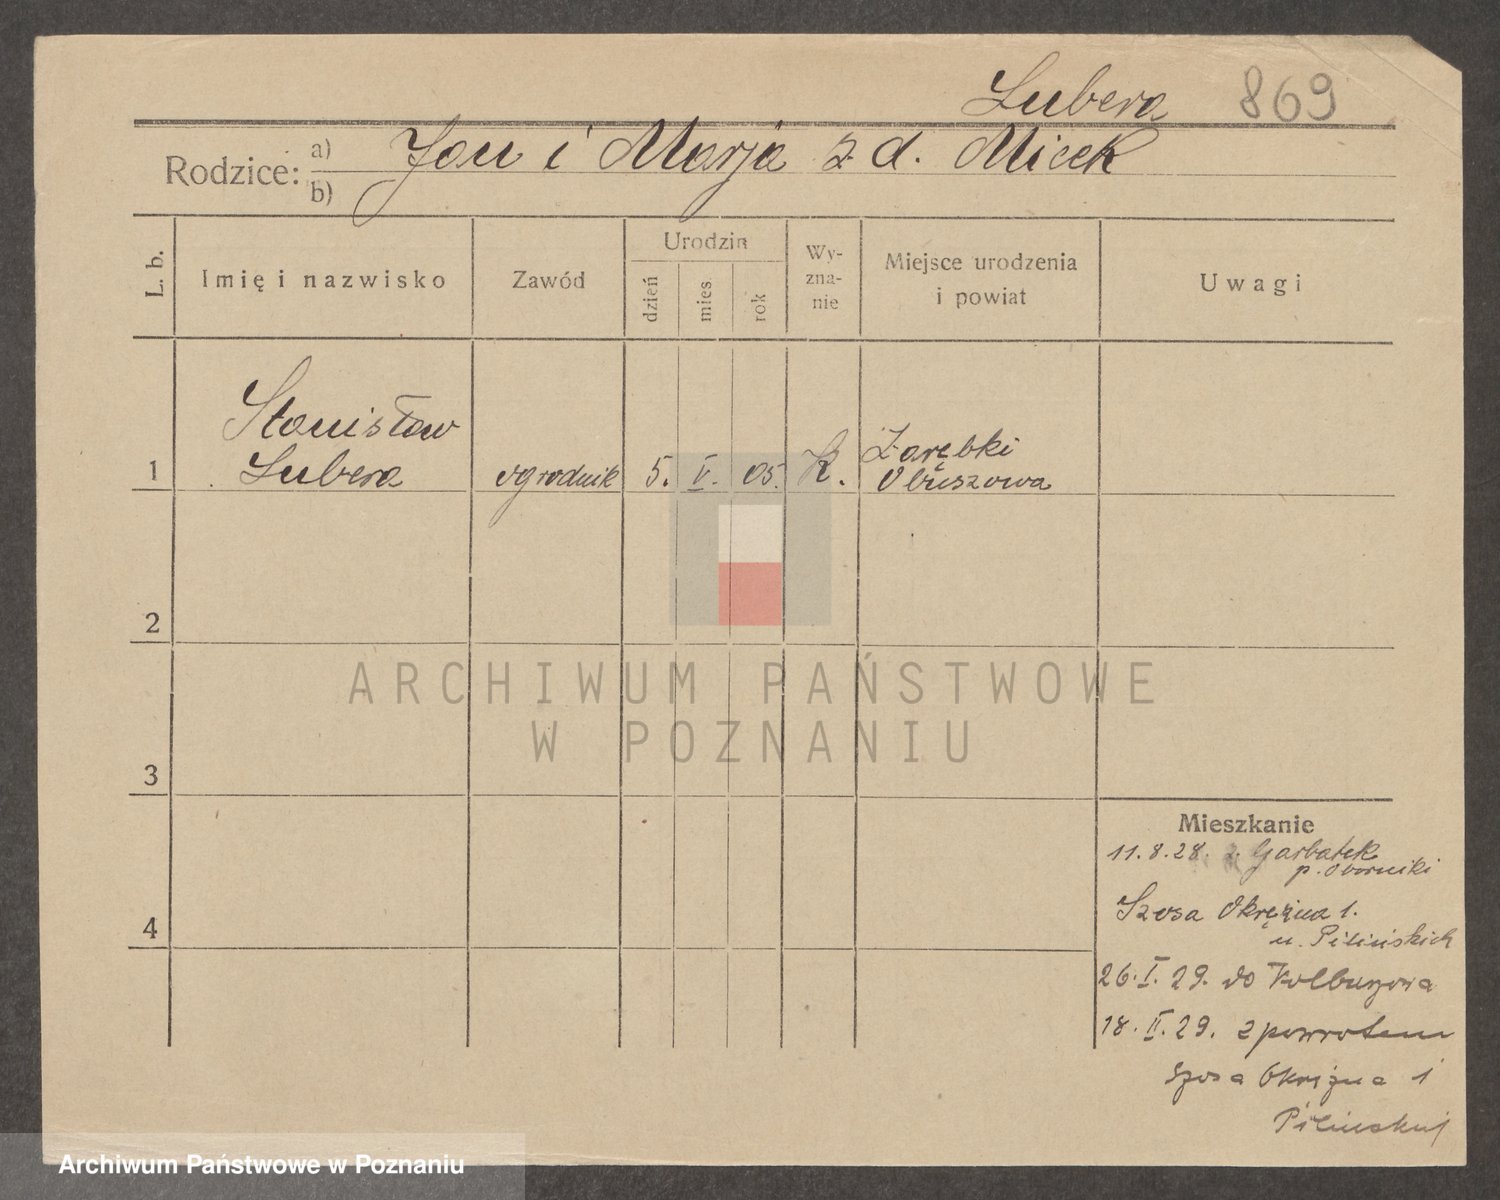 Lubera 869
Rodzice: a) b) Jan i Marja z d. Micek
L. b.
Imię i nazwisko
Zawód
Urodzin
dzień
mies.
rok
Wy-
zna-
nie
Miejsce urodzenia
i powiat
Uwagi
1
Stanisław
Lubera
ogrodnik
5. V. 05.
K.
Zarębki
Obuszowa
2
3
4
ARCHIWUM PAŃSTWOWE
W POZNANIU
Mieszkanie
11.8.28. z Garbatek
p. Oborniki
Szosa Okrężna 1.
u. Pilińskich
26.I.29. do Kolbuszowa
18.II.29. z powrotem
Szosa Okrężna 1
Pilińskiej
Archiwum Państwowe w Poznaniu